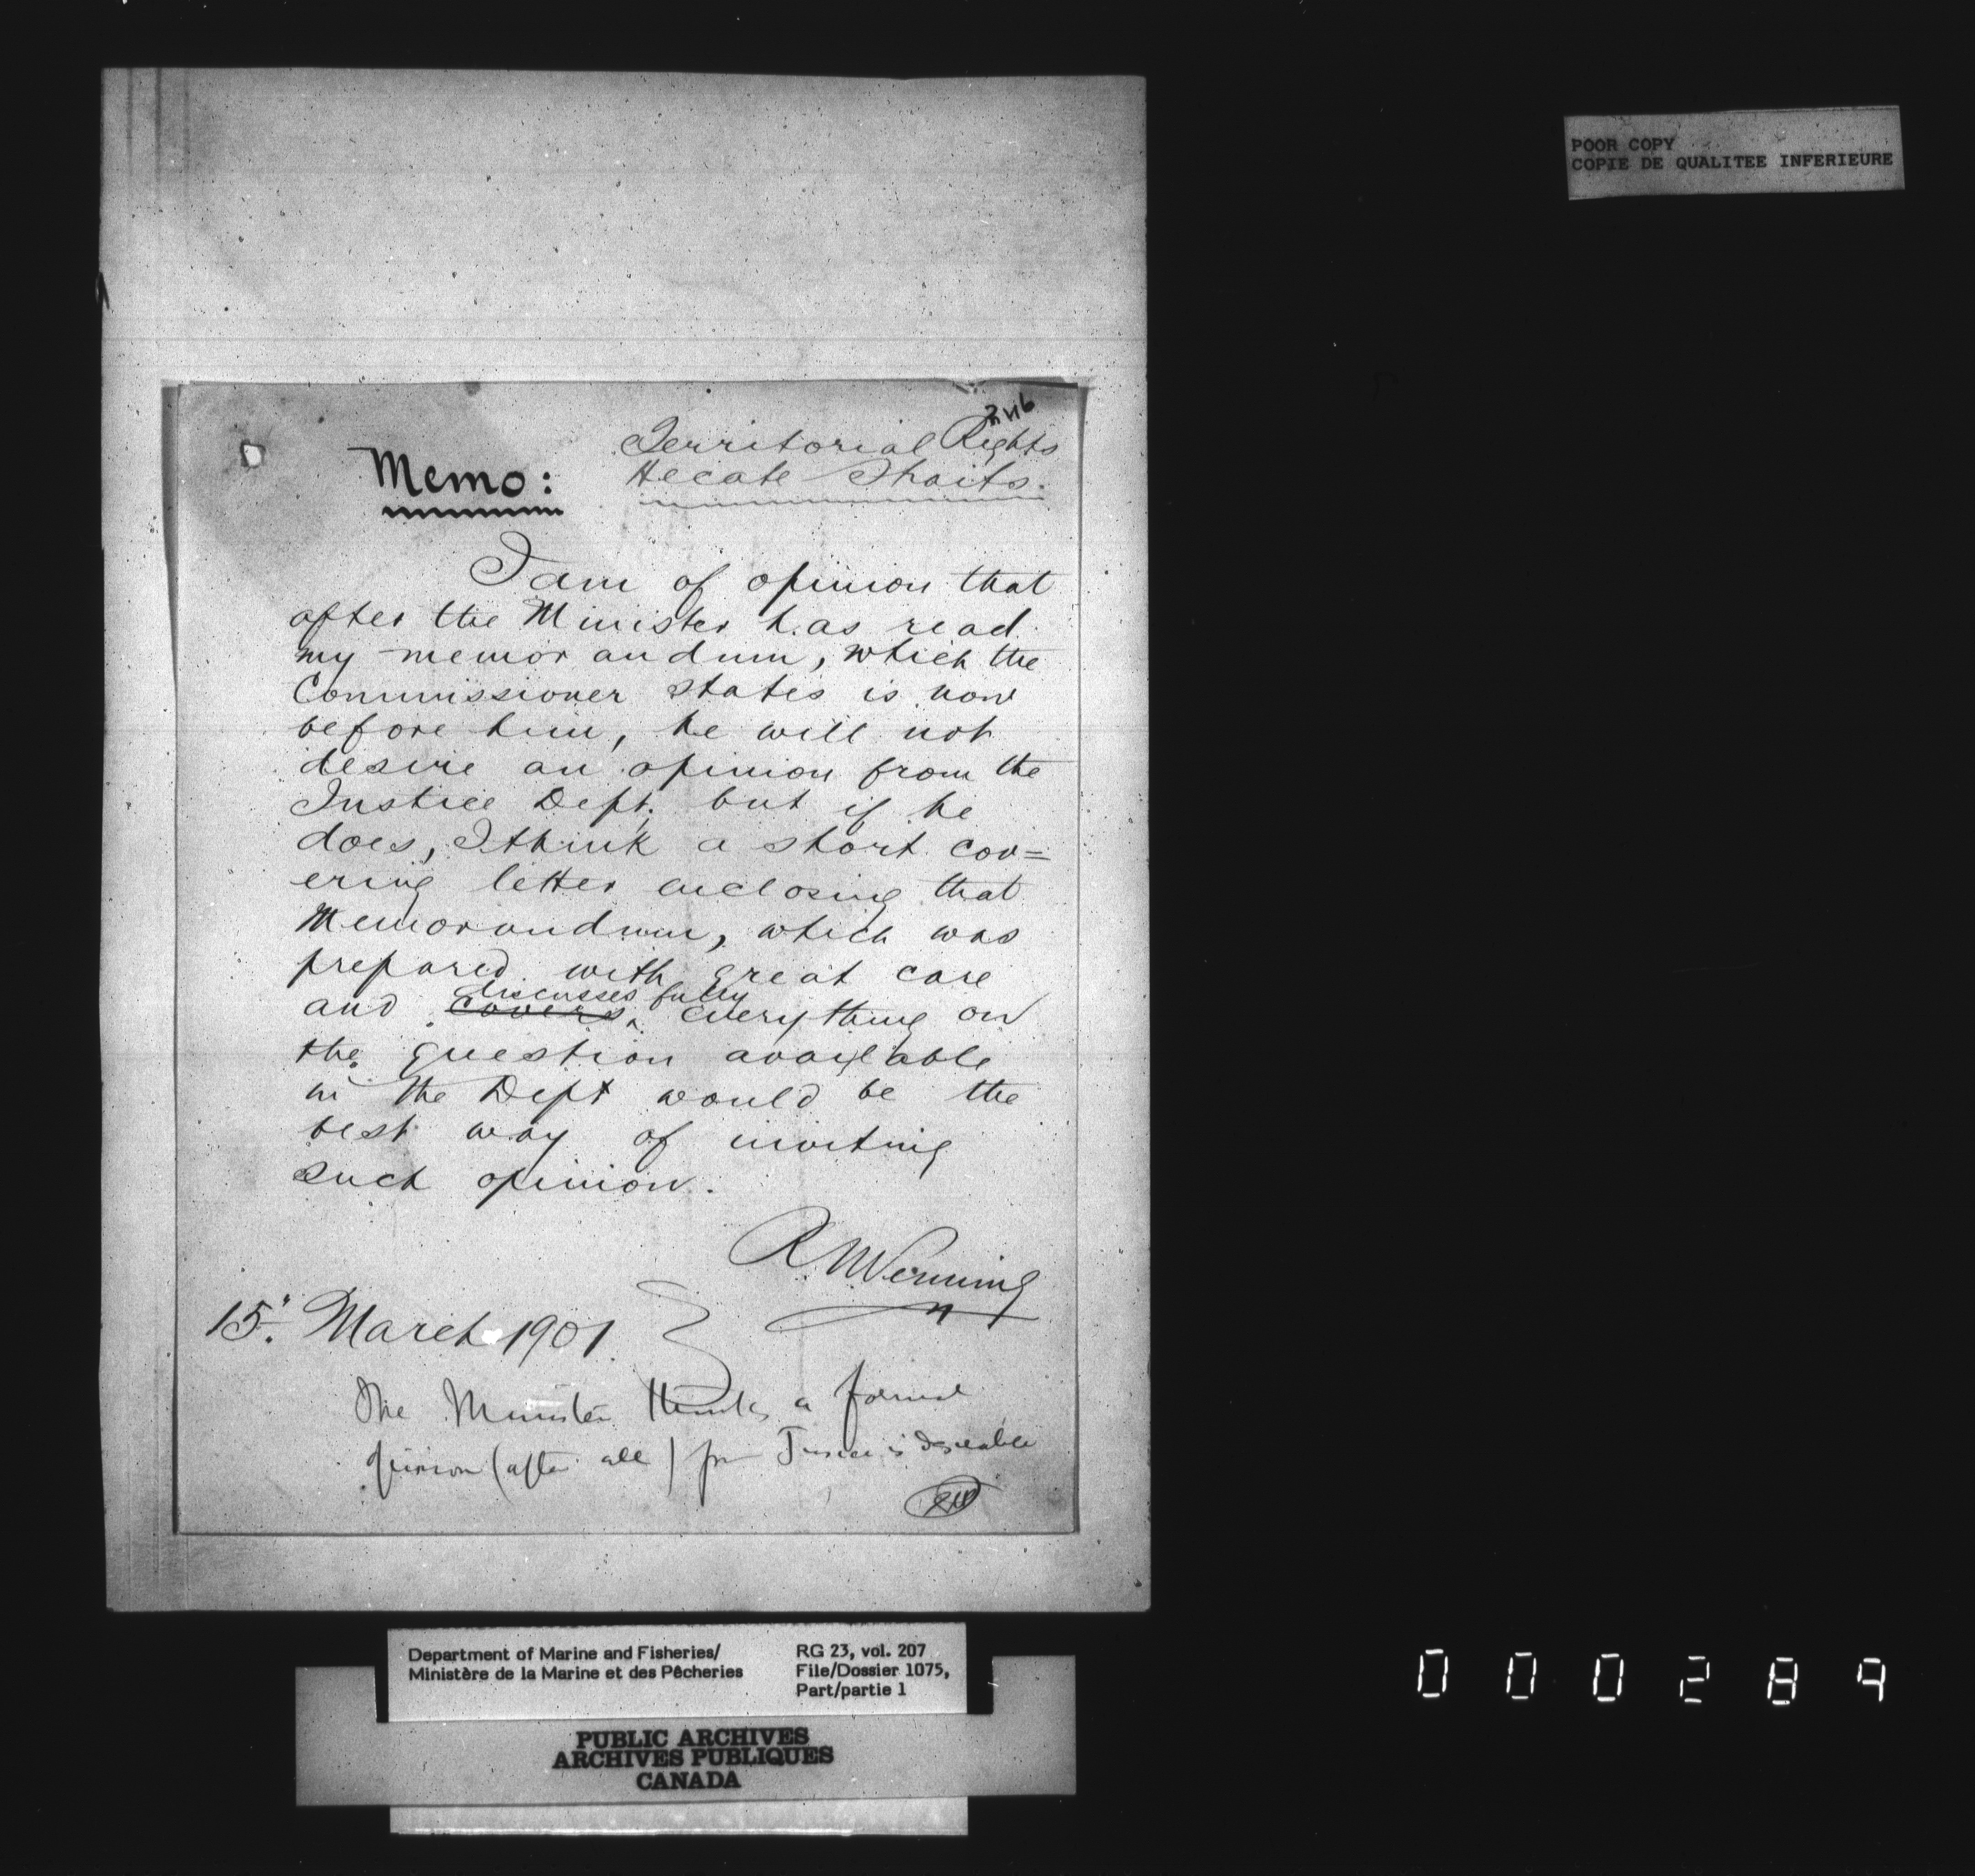 POOR COPY
COPIE DE QUALITEE INFERIEURE
246
Territorial Rights
Memo: Hecate Straits.
I am of opinion that
after the Minister has read
my memorandum, which the
Commissioner states is now
before him, he will not
desire an opinion from the
Justice Dept; but if he
does, I think a short cov=
ering letter enclosing that
Memorandum, which was
prepared with great care
discusses fully
and covers everything on
the question available
in the Dept would be the
best way of inviting
such opinion.
R. N. Venning
15: March 1901.
The Minister thinks a formal
opinion (after all) from Justice is desirable
Department of Marine and Fisheries/
Ministère de la Marine et des Pêcheries
RG 23, vol. 207
File/Dossier 1075,
Part/partie 1
PUBLIC ARCHIVES
ARCHIVES PUBLIQUES
CANADA
000289